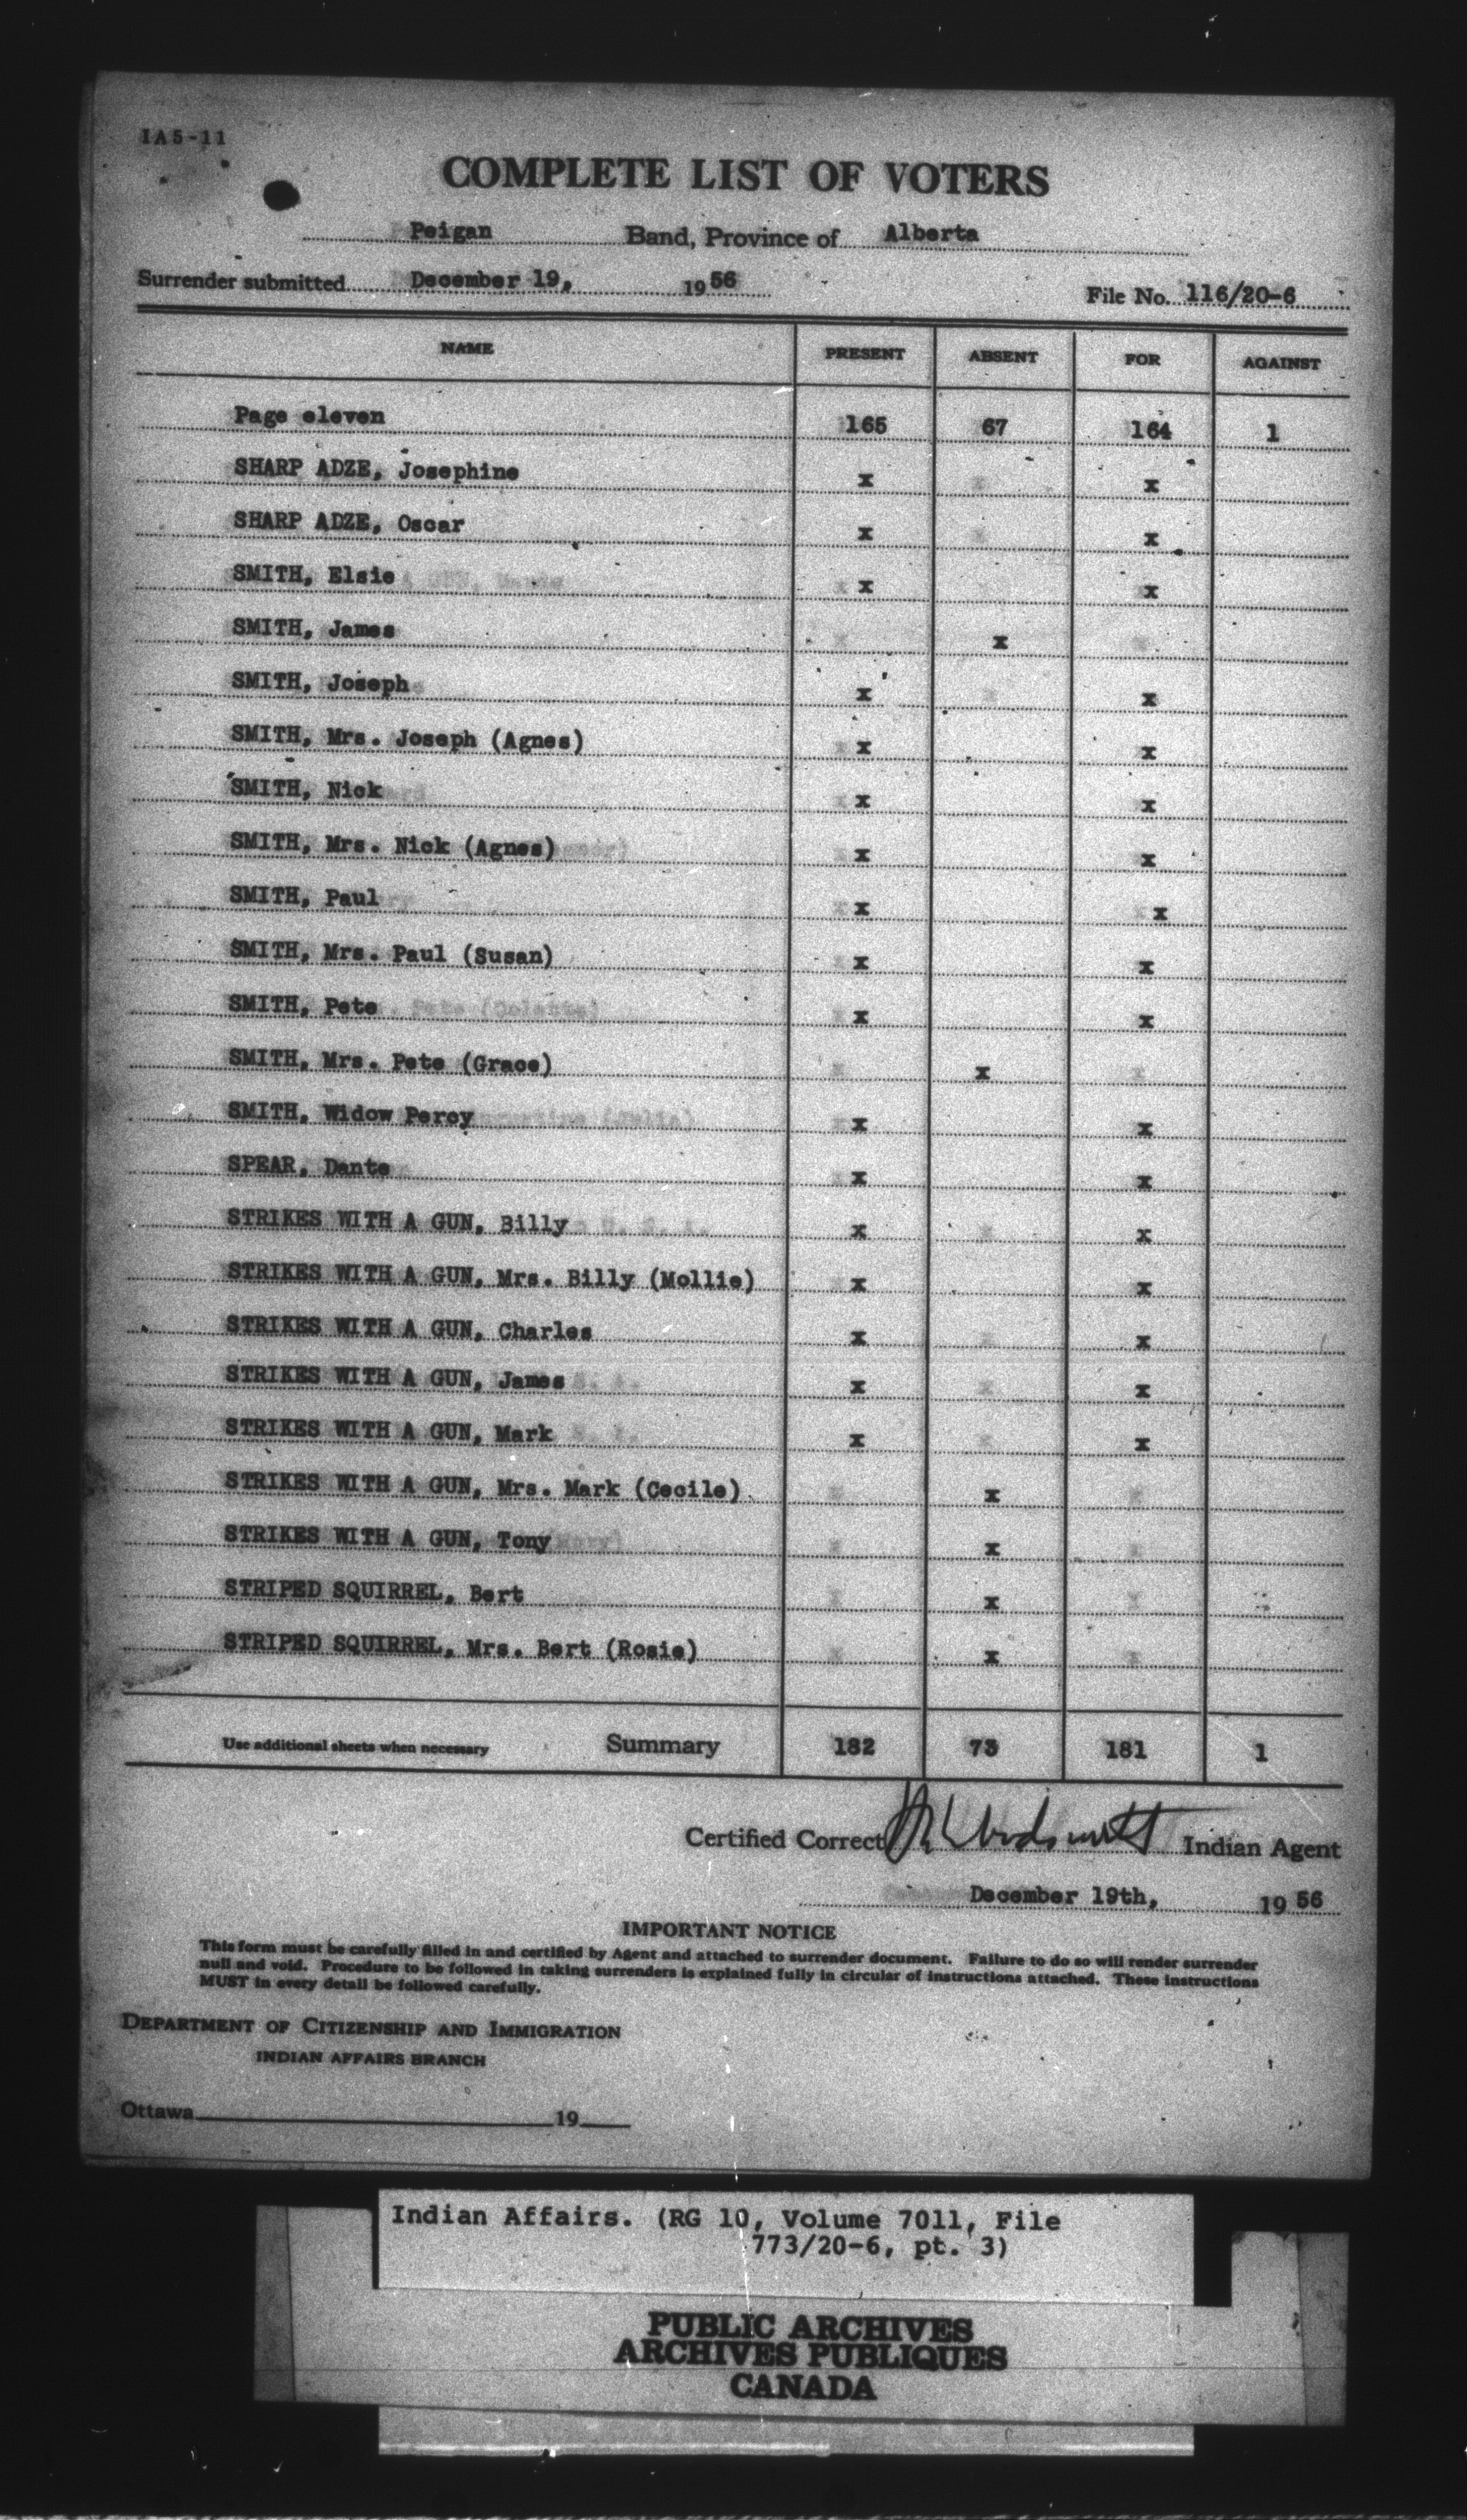 IA5-11
COMPLETE LIST OF VOTERS
Peigan Band, Province of Alberta
Surrender submitted December 19, 1956
File No. 116/20-6
NAME PRESENT ABSENT FOR AGAINST
Page eleven 165 67 164 1
SHARP ADZE, Josephine x x
SHARP ADZE, Oscar x x
SMITH, Elsie x x
SMITH, James x
SMITH, Joseph x x
SMITH, Mrs. Joseph (Agnes) x x
SMITH, Nick x x
SMITH, Mrs. Nick (Agnes) x x
SMITH, Paul x x
SMITH, Mrs. Paul (Susan) x x
SMITH, Pete x x
SMITH, Mrs. Pete (Grace) x
SMITH, Widow Percy x x
SPEAR, Dante x x
STRIKES WITH A GUN, Billy x x
STRIKES WITH A GUN, Mrs. Billy (Mollie) x x
STRIKES WITH A GUN, Charles x x
STRIKES WITH A GUN, James x x
STRIKES WITH A GUN, Mark x x
STRIKES WITH A GUN, Mrs. Mark (Cecile) x
STRIKES WITH A GUN, Tony x
STRIPED SQUIRREL, Bert x
STRIPED SQUIRREL, Mrs. Bert (Rosie) x
Use additional sheets when necessary Summary 182 73 181 1
Certified Correct Indian Agent
December 19th, 1956
IMPORTANT NOTICE
This form must be carefully filled in and certified by Agent and attached to surrender document. Failure to do so will render surrender
null and void. Procedure to be followed in taking surrenders is explained fully in circular of instructions attached. These instructions
MUST in every detail be followed carefully.
DEPARTMENT OF CITIZENSHIP AND IMMIGRATION
INDIAN AFFAIRS BRANCH
Ottawa 19
Indian Affairs. (RG 10, Volume 7011, File
773/20-6, pt. 3)
PUBLIC ARCHIVES
ARCHIVES PUBLIQUES
CANADA